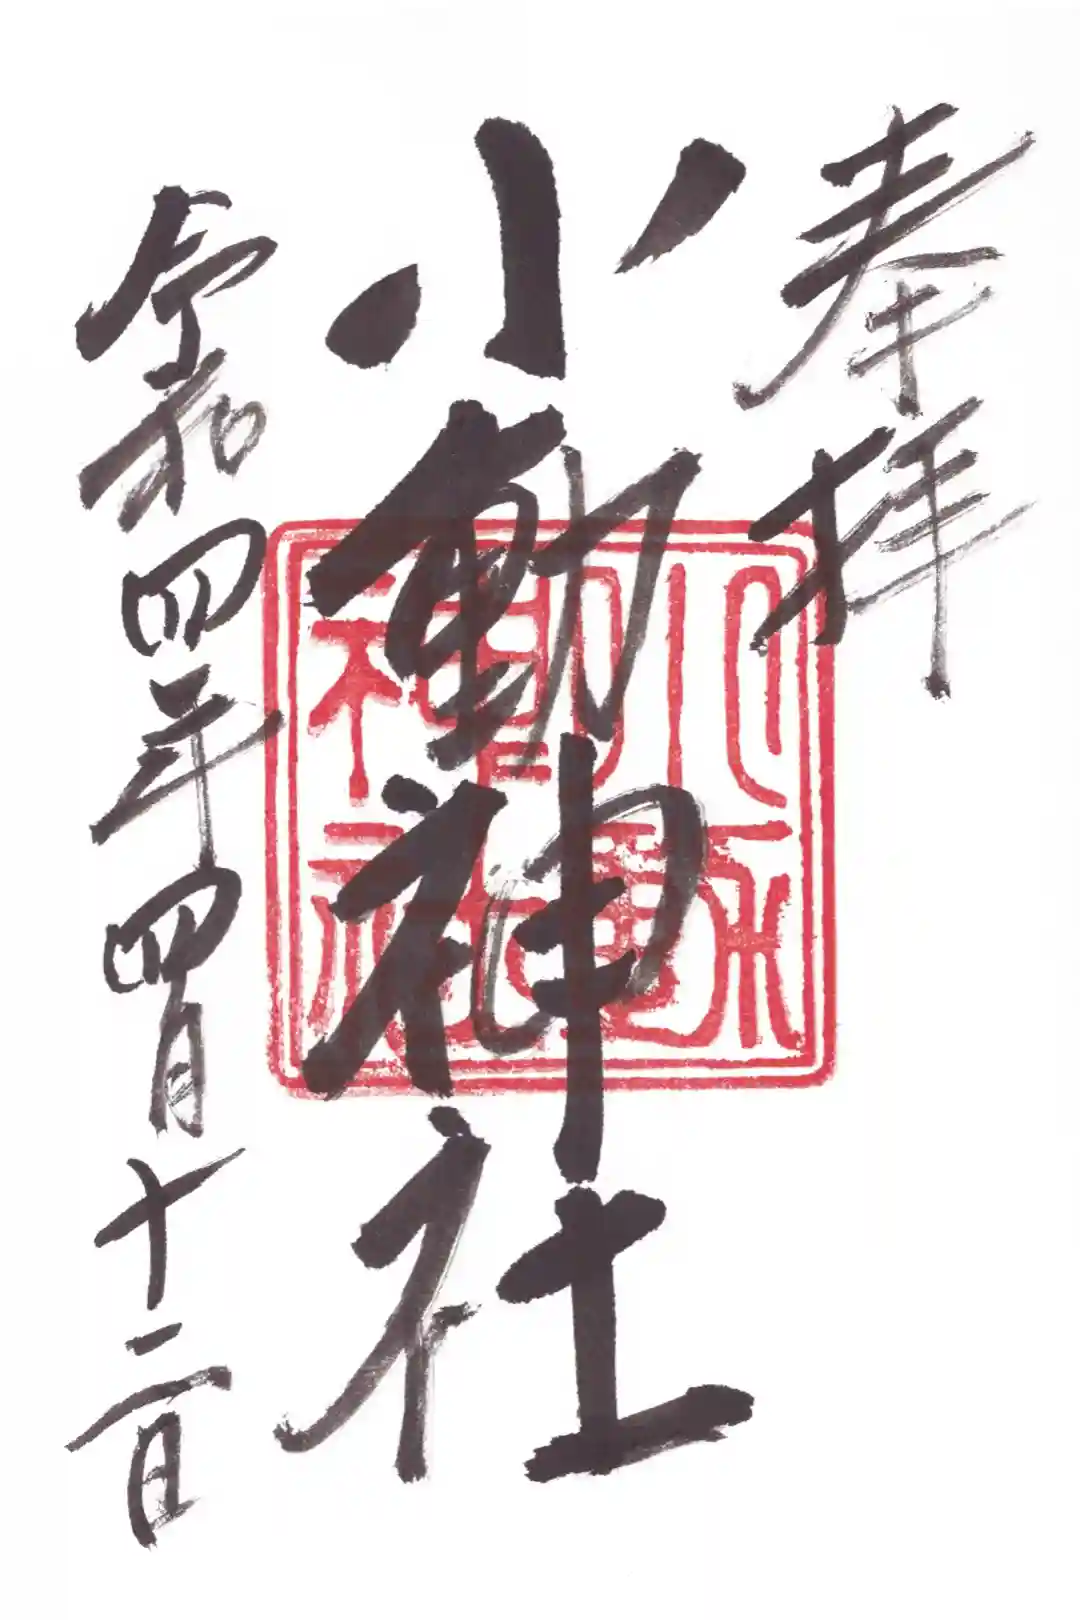 奉拝
小動神社
令和四年四月十二日
小動
神社